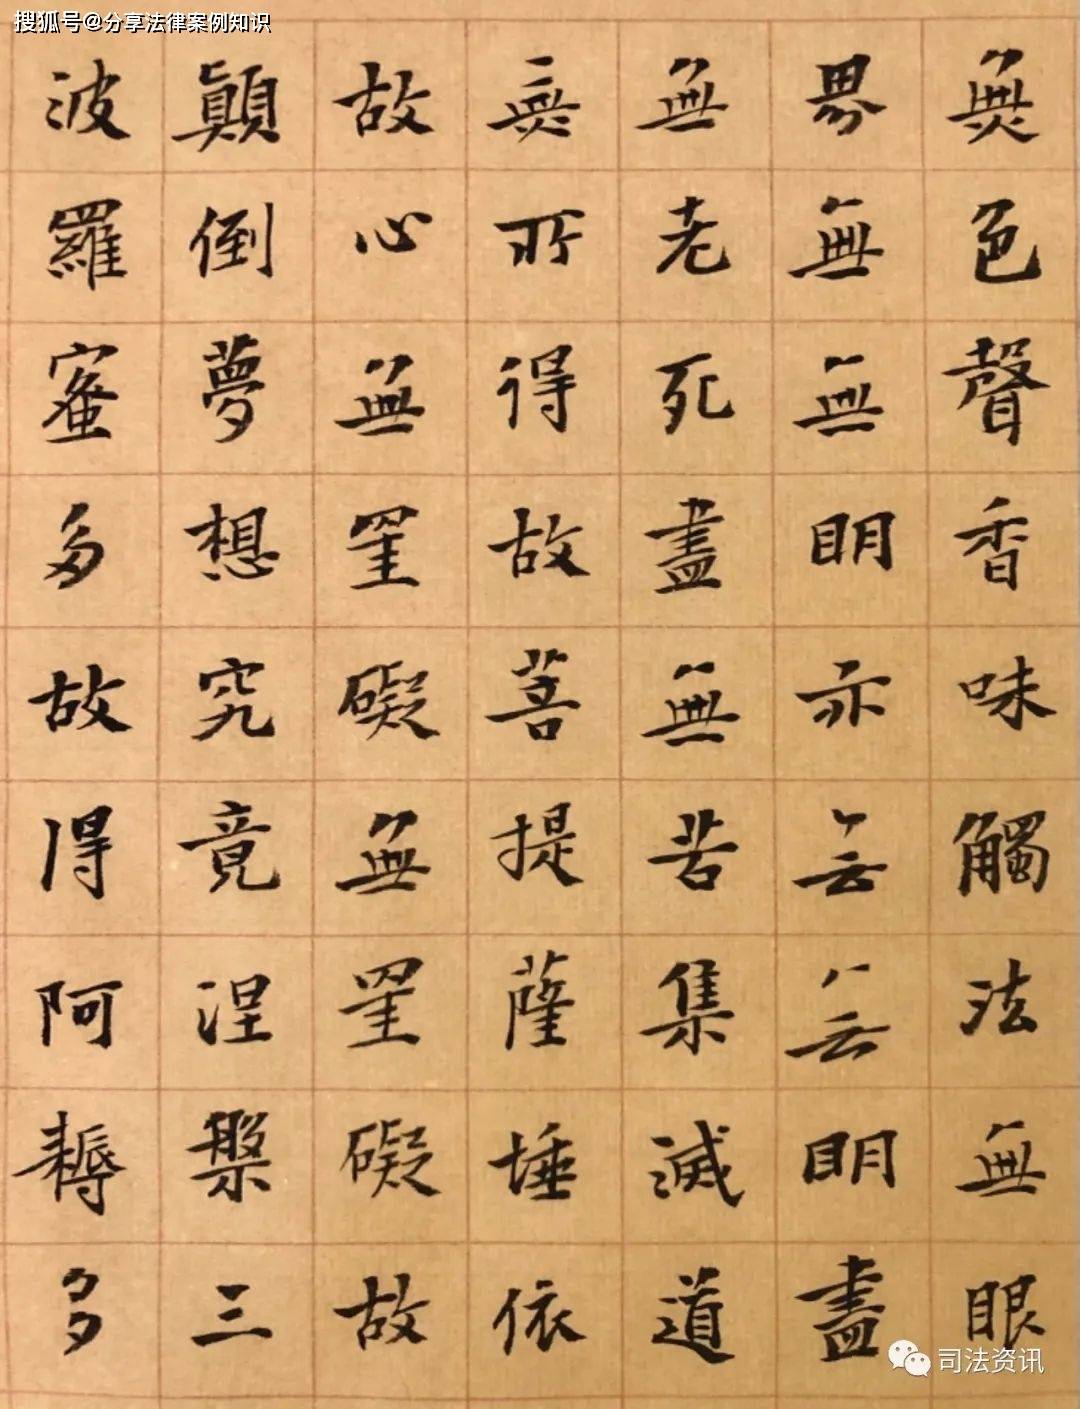 搜狐号@分享法律案例知识
無色聲香味觸法無眼
界無無明亦無無明盡
無老死盡無苦集滅道
無所得故菩提薩埵依
故心無罣礙無罣礙故
顛倒夢想究竟涅槃三
波羅蜜多故得阿耨多
司法资讯